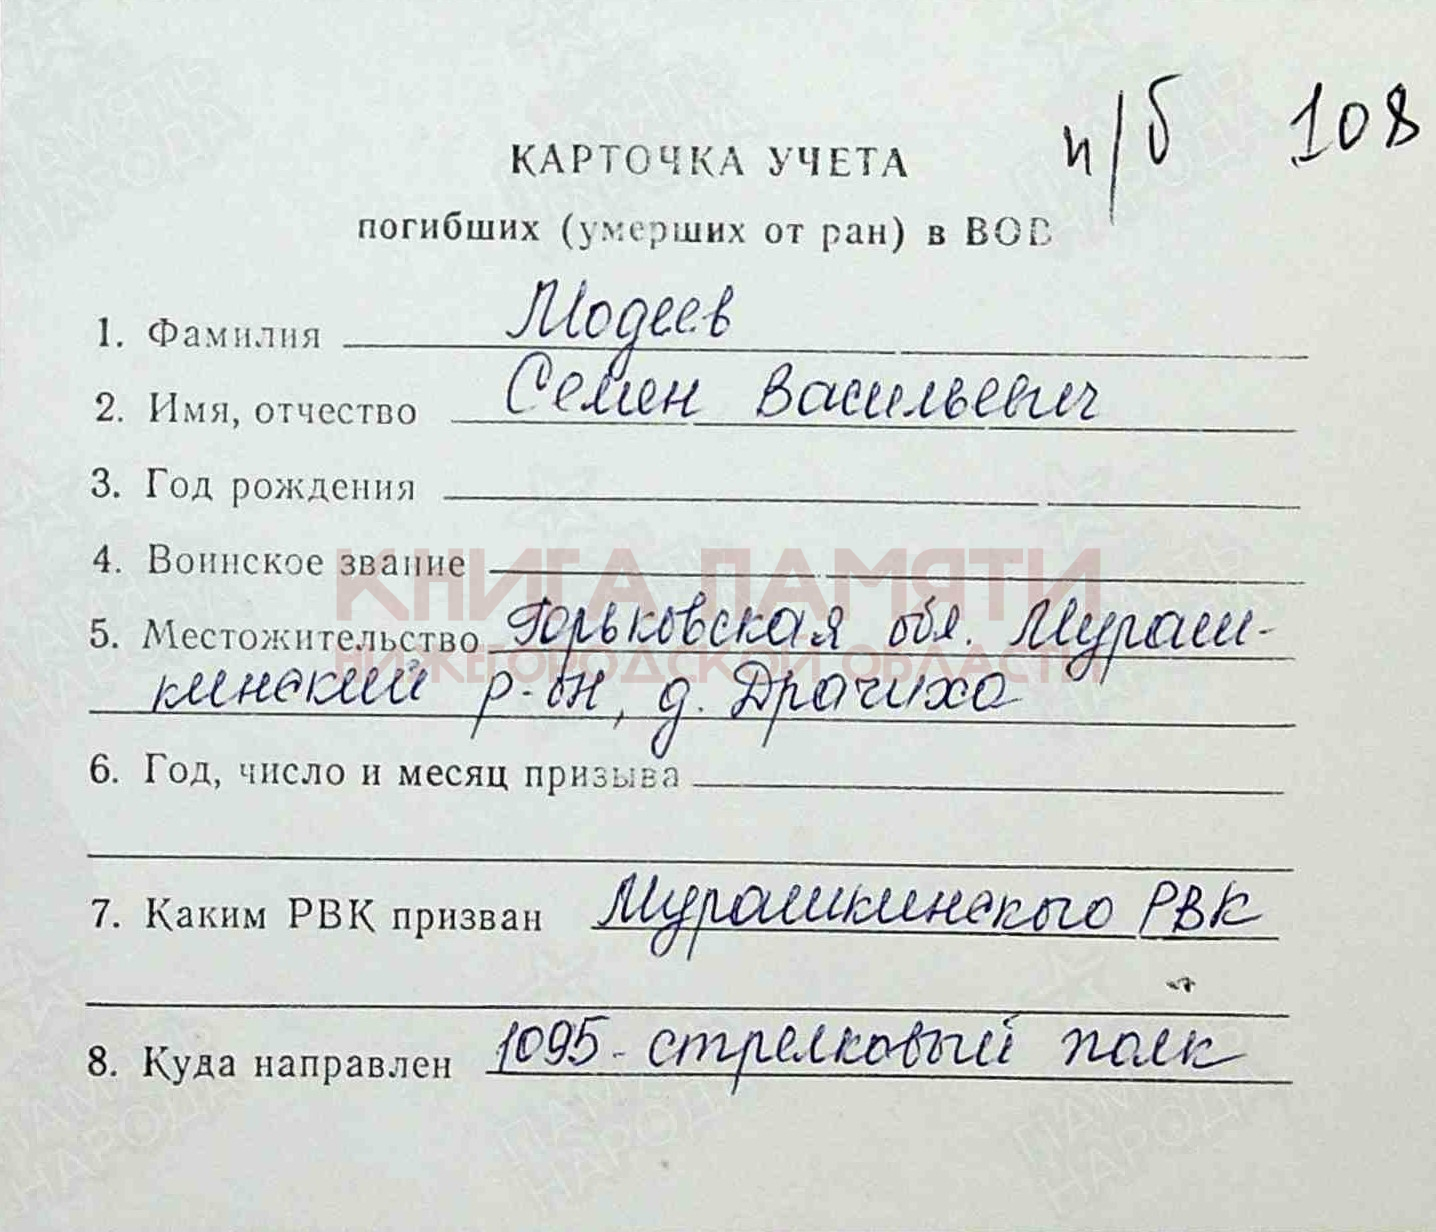 п/б 108
КАРТОЧКА УЧЕТА
погибших (умерших от ран) в ВОВ
1. Фамилия Модеев
2. Имя, отчество Семен Васильевич
3. Год рождения
4. Воинское звание
КНИГА ПАМЯТИ
5. Местожительство Горьковская обл. Мураш-
НИЖЕГОРОДСКОЙ ОБЛАСТИ
кинский р-он, д. Драчиха
6. Год, число и месяц призыва
7. Каким РВК призван Мурашкинского РВК
8. Куда направлен 1095 - стрелковый полк
ПАМЯТЬ НАРОДА